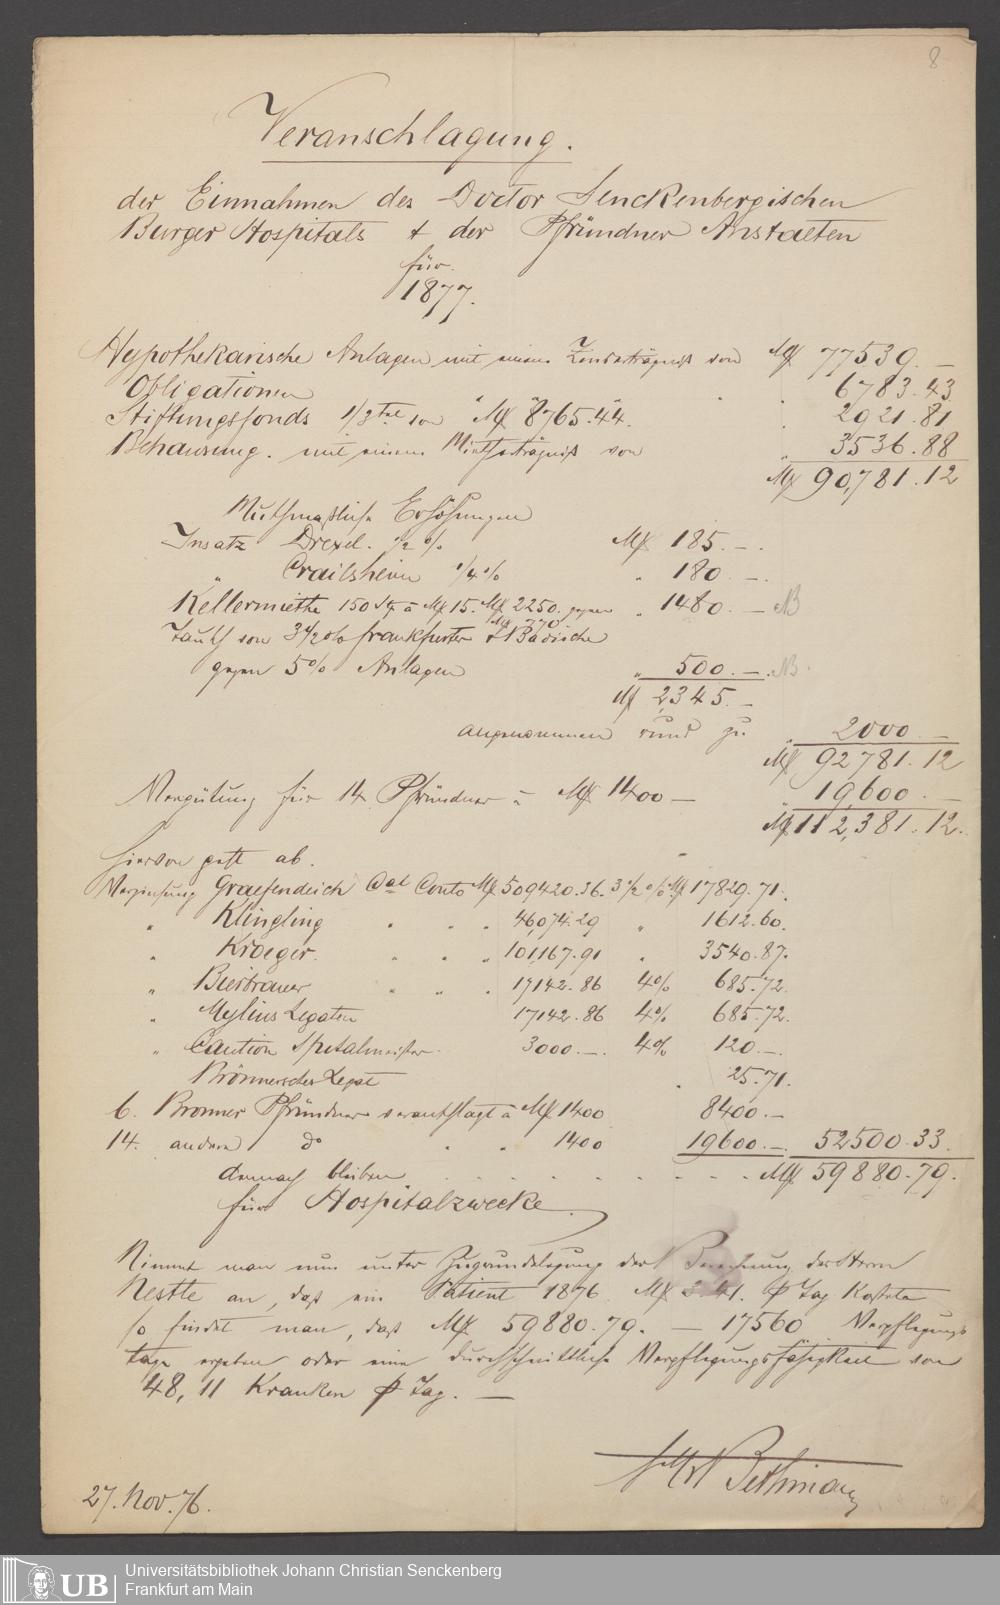 8
Veranschlagung.
der Einnahmen des Doctor Senckenbergischen
Burger Hospitals & der Pfründner Anstalten
für
1877.
Hypothekarische Anlagen mit einem Zinserträgniß von M 77539.—
Obligationen " " " 6783.43
Stiftungsfonds 1/3tel von M 8765.44. " 2921.81
Behausung. mit einem Miethserträgniß von " 3536.88
M 90,781.12
Muthmaßliche Erhöhungen
Insatz Drexel. 1/2 % M 185.—.
" Crailsheim 1/4 % " 180.—.
Kellermiethe 150 Stk a M 15. M 2250. gegen " 1480.— NB
M 770
Tausch von 3 1/2 % Frankfurter & Badische
gegen 5% Anlagen " 500.—. NB.
M 2,345.—
angenommen rund zu " 2000.—
M 92781.12
Vergütung für 14 Pfründner à M 1400— " 19,600.—
M 112,381.12.
hiervon geht ab.
Verzinsung Graefendeich Cal Conto M 509420.36. 3 1/2 % M 17829.71.
" Klingling " " " 46,074.29 " 1612.60.
" Kroeger. " " " 101,167.91 " 3540.87.
" Bierbrauer " " " 17142.86 4% 685.72.
" Mylius Legaten 17142.86 4% 685.72.
" Caution Spitalmeister. 3000.—. 4% 120.—.
Brönnersches Legat " 25.71.
6. Bronner Pfründner veranschlagt à M 1400 8400.—
14. andere do " " 1400 19600.—. 52500.33.
demnach bleiben . . . . . . . . M 59880.79.
für Hospitalzwecke.
Nimmt man nun unter Zugrundelegung der Berechnung des Herrn
Nestle an, daß ein Patient 1876 M 3.41. p Tag kostete
so findet man, daß M 59880.79. — 17560 Verpflegungs
tage ergeben oder eine durchschnittliche Verpflegungsfähigkeit von
48,11 Kranken p Tag. —
Bethmann
27. Nov. 76.
UB
Universitätsbibliothek Johann Christian Senckenberg
Frankfurt am Main